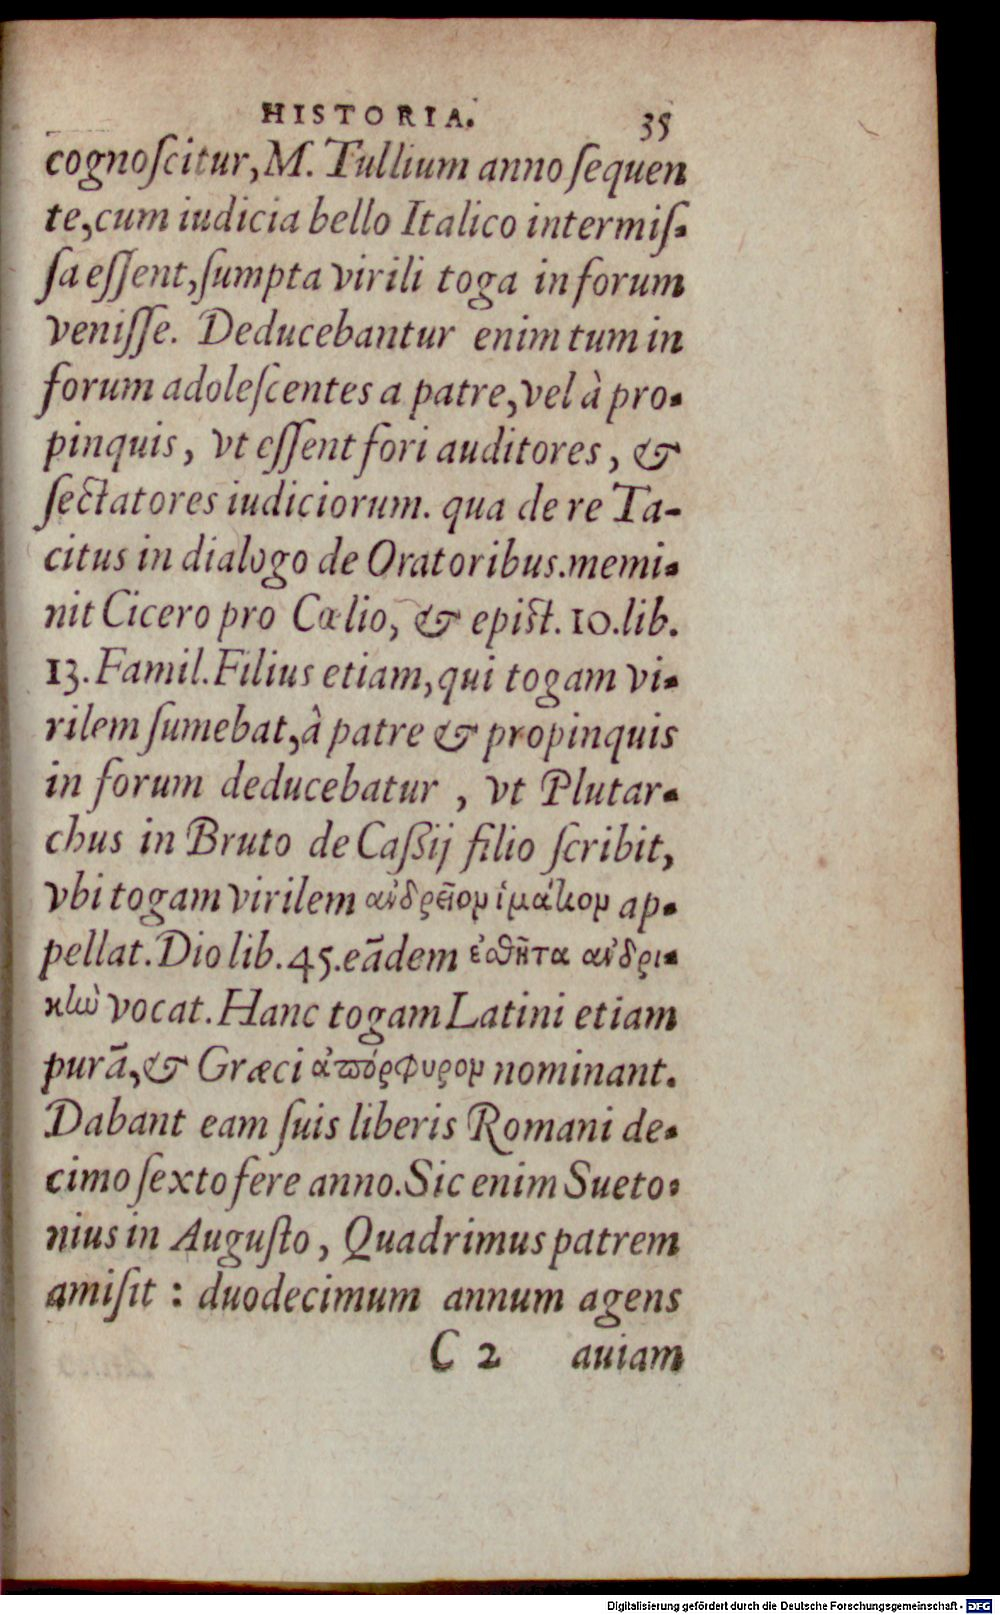 HISTORIA. 35
cognoſcitur, M. Tullium anno ſequen
te, cum iudicia bello Italico intermiſ-
ſa eſſent, ſumpta virili toga in forum
veniſſe. Deducebantur enim tum in
forum adoleſcentes a patre, vel à pro-
pinquis, vt eſſent fori auditores, &
ſectatores iudiciorum. qua de re Ta-
citus in dialogo de Oratoribus. memi-
nit Cicero pro Cœlio, & epist. 10. lib.
13. Famil. Filius etiam, qui togam vi-
rilem ſumebat, à patre & propinquis
in forum deducebatur , vt Plutar-
chus in Bruto de Caſſij filio ſcribit,
vbi togam virilem ανδρεῖον ἱμάτιον ap-
pellat. Dio lib. 45. eādem ἐσθῆτα ανδρι-
κὴν vocat. Hanc togam Latini etiam
purā, & Græci ἀπόρφυρον nominant.
Dabant eam ſuis liberis Romani de-
cimo ſexto fere anno. Sic enim Sueto-
nius in Auguſto, Quadrimus patrem
amiſit : duodecimum annum agens
C 2 auiam
Digitalisierung gefördert durch die Deutsche Forschungsgemeinschaft - DFG